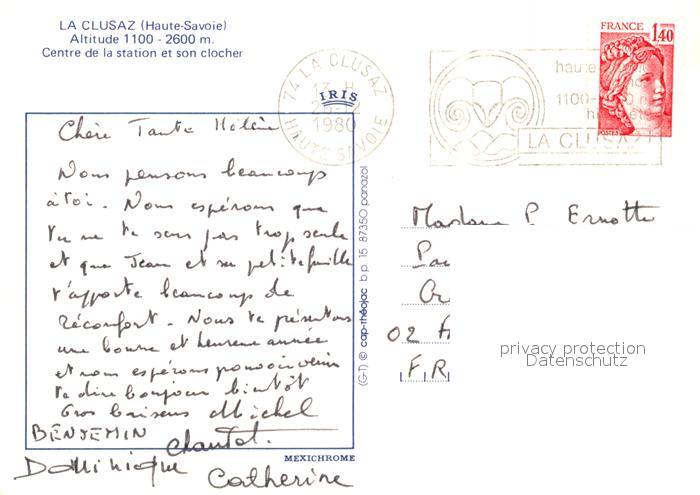 LA CLUSAZ (Haute-Savoie)
Altitude 1100 - 2600 m.
Centre de la station et son clocher
IRIS
74 LA CLUSAZ
17 H
1980
HAUTE SAVOIE
haute
1100
LA CLUSAZ
FRANCE
1,40
POSTES
Chère Tante Hélène
Nous pensons beaucoup
à toi. Nous espérons que
tu ne te sens pas trop seule
et que Jean et sa petite famille
t'apporte beaucoup de
réconfort. Nous te présentons
une bonne et heureuse année
et nous espérons pouvoir venir
te dire bonjour bientôt
Gros baisers Michel
BENJEMIN Chantal.
Dominique Catherine
(G-T) © cap-théojac b.p. 15 87350 panazol
MEXICHROME
Madame P. Ernotte
02
FR
privacy protection
Datenschutz